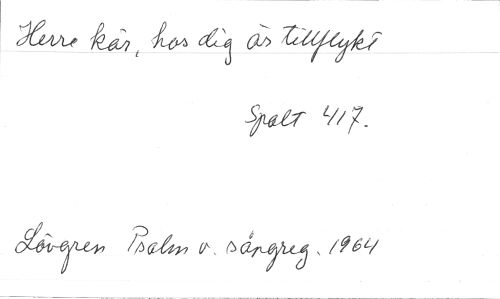 Herre kär, hos dig är tillflykt
Spalt 417.
Lövgren Psalm v. sångreg. 1964